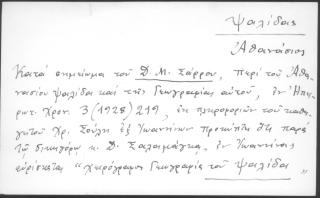 Ψαλίδας
Ἀθανάσιος
Κατὰ σημείωμα τοῦ Δ. Μ. Σάρρου, περὶ τοῦ Ἀθα-
νασίου Ψαλίδα καὶ τῆς Γεωγραφίας αὐτοῦ, ἐν Ἠπει-
ρωτ. Χρον. 3 (1928) 219, ἐκ πληροφοριῶν τοῦ καθη-
γητοῦ Χρ. Σούλη ἐξ Ἰωαννίνων προκύπτει ὅτι παρὰ
τῷ δικηγόρῳ κ. Δ. Σαλαμάγκᾳ ἐν Ἰωαννίνοις
εὑρίσκεται "χειρόγραφος Γεωγραφία τοῦ Ψαλίδα"